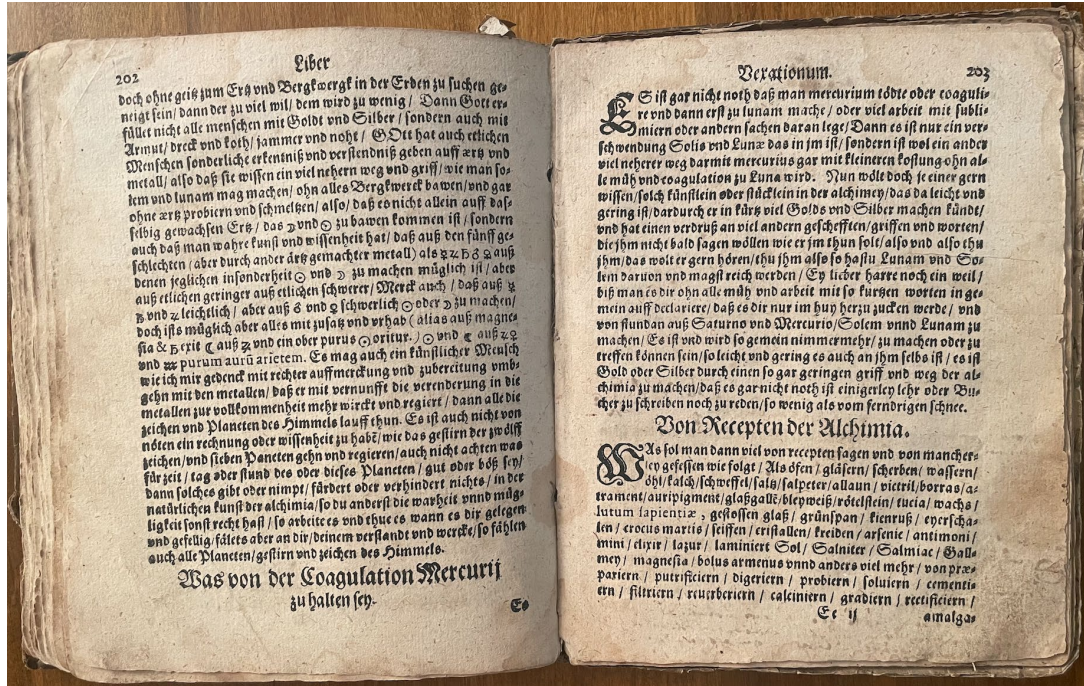 202
Liber
doch ohne geitz zum Ertz vnd Bergkwergk in der Erden zu suchen ge-
neigt sein/ dann der zu viel wil/ dem wird zu wenig / Dann Gott er-
füllet nicht alle menschen mit Goldt vnd Silber / sondern auch mit
Armut/ dreck vnd koth/ jammer vnd noht / GOtt hat auch etlichen
Menschen sonderliche erkentniß vnd verstendniß geben auff ærtz vnd
metall/ also daß sie wissen ein viel nehern weg vnd griff/ wie man so-
lem vnd lunam mag machen/ ohn alles Bergkwerck bawen/ vnd gar
ohne ærtz probiern vnd schmeltzen/ also/ daß es nicht allein auff das-
selbig gewachsen Ertz/ das ☽ vnd ☉ zu bawen kommen ist/ sondern
auch daß man wahre kunst vnd wissenheit hat/ daß auß den fünff ge-
schlechten (aber durch ander ärtz gemachter metal) als ☿ ♃ ♄ ♂ ♀ auß
denen jeglichen insonderheit ☉ vnd ☽ zu machen müglich ist/ aber
auß etlichen geringer auß etlichen schwerer/ Merck auch / daß auß ☿
♄ vnd ♃ leichtlich / aber auß ♂ vnd ♀ schwerlich ☉ oder ☽ zu machen/
doch ists müglich aber alles mit zusatz vnd vrhab (alias auß magne-
sia & ♄ exit ☾ auß ♃ vnd ein ober purus ☉ oritur.) ☉ vnd ☾ auß ♃ ♀
vnd ♒ purum aurū arietem. Es mag auch ein künstlicher Mensch
wie ich mir gedenck mit rechter auffmerckung vnd zubereitung vmb-
gehn mit den metallen/ daß er mit vernunfft die verenderung in die
metallen zur vollkommenheit mehr wirckt vnd regiert/ dann alle die
zeichen vnd Planeten des Himmels lauff thun. Es ist auch nicht von
nöten ein rechnung oder wissenheit zu habē/ wie das gestirn der zwölff
zeichen/ vnd sieben Paneten gehn vnd regieren/ auch nicht achten was
für zeit / tag oder stund des oder dieses Planeten / gut oder böß sey/
dann solches gibt oder nimpt/ fürdert oder verhindert nichts/ in der
natürlichen kunst der alchimia/ so du anderst die warheit vnnd müg-
ligkeit sonst recht hast/ so arbeite es vnd thue es wann es dir gelegen
vnd gefellig/ fälets aber an dir/ deinem verstandt vnd wercke/ so fählen
auch alle Planeten/ gestirn vnd zeichen des Himmels.
Was von der Coagulation Mercurij
zu halten sey.
Es
Vexationum.
203
ES ist gar nicht noth daß man mercurium tödte oder coaguli-
re vnd dann erst zu lunam mache/ oder viel arbeit mit subli-
miern oder andern sachen daran lege/ Dann es ist nur ein ver-
schwendung Solis vnd Lunæ das in jm ist/ sondern ist wol ein ander
viel neherer weg darmit mercurius gar mit kleineren kostung ohn al-
le müh vnd coagulation zu Luna wird. Nun wölt doch je einer gern
wissen/ solch künstlein oder stücklein in der alchimey/ das da leicht vnd
gering ist/ dardurch er in kürtz viel Golds vnd Silber machen kündt/
vnd hat einen verdruß an viel andern gescheften/ griffen vnd worten/
die jhm nicht bald sagen wöllen wie er jm thun solt/ also vnd also thu
jhm/ das wolt er gern hören/ thu jhm also so hastu Lunam vnd So-
lem daruon vnd magst reich werden/ Ey lieber harre noch ein weil/
biß man es dir ohn alle müh vnd arbeit mit so kurtzen worten in ge-
mein auff declariere/ daß es dir nur im huy herzu zucken werde/ vnd
von stund an auß Saturno vnd Mercurio/ Solem vnnd Lunam zu
machen/ Es ist vnd wird so gemein nimmermehr/ zu machen oder zu
treffen können sein/ so leicht vnd gering es auch an jhm selbs ist / es ist
Gold oder Silber durch einen so gar geringen griff vnd weg der al-
chimia zu machen/ daß es gar nicht noth ist einigerley lehr oder Bü-
cher zu schreiben noch zu reden/ so wenig als vom ferndrigen schnee.
Von Recepten der Alchimia.
WAs sol man dann viel von recepten sagen vnd von mancher-
ley gefessen wie folgt / Als öfen / gläsern / scherben / wassern /
öhl/ kalch/ schweffel/ saltz/ salpeter/ allaun / vietril/ borras/ a-
trament/ auripigment/ glaßgallē/ bleyweiß/ rötelstein/ tucia/ wachs/
lutum sapientiæ, gestossen glaß / grünspan / kienruß / eyerscha-
len / crocus martis / seiffen / cristallen / kreiden / arsenic / antimoni /
mini / elixir / lazur / laminiert Sol / Salniter / Salmiac / Gall-
mey / magnesia / bolus armenus vnnd anders viel mehr / von præ-
pariern / putrificiern / digeriern / probiern / soluiern / cementi-
ern / filtriern / reuerberiern / calciniern / gradiern / rectificiern /
Cc ij
amalga-